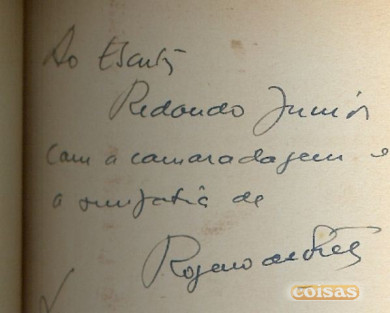 Ao
Redondo Junior
com a camaradagem e
a simpatia de
Rogerio de
coisas